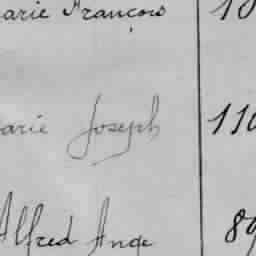 arie François 10
arie Joseph 110
Alfred Ange 89